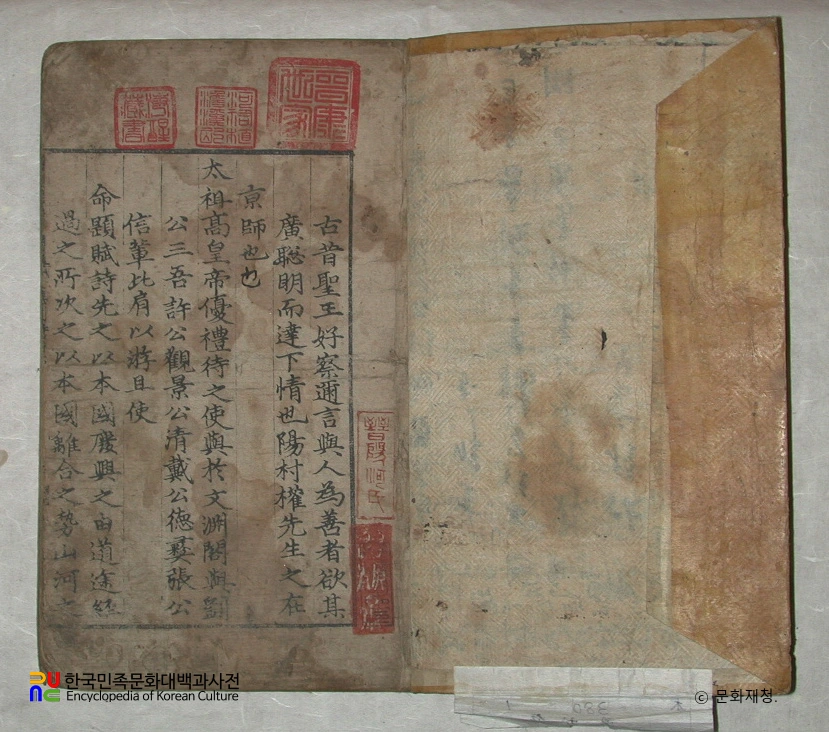 古昔聖王好察邇言與人為善者欲其
廣聡明而達下情也陽村權先生之在
京師也
太祖高皇帝優禮待之使與於文淵閣與劉
公三吾許公觀景公清戴公德彛張公
信輩比肩以游且使
命題賦詩先之以本國廢興之由道途經
過之所次之以本國離合之勢山河之
晉康世家
河氏
한국민족문화대백과사전
Encyclopedia of Korean Culture
© 문화재청.